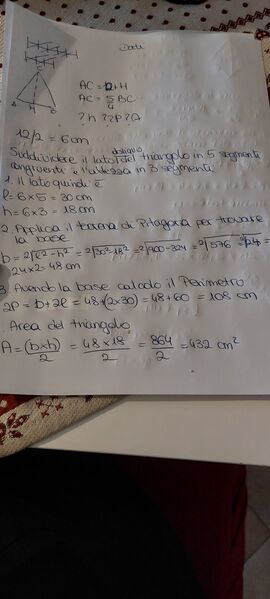 Dati
AC = 12+H
AC = 5/4 BC
? h ? 2P ? A
12/2 = 6 cm
Suddividere il lato obliquo del triangolo in 5 segmenti
congruenti e l'altezza in 3 segmenti
1. Il lato quindi è
l = 6x5 = 30 cm
h = 6x3 = 18 cm
2. Applica il teorema di Pitagora per trovare
la base
b = 2√l²-h² = 2√30²-18² = 2√900-324 = 2√576 = 24
= 24x2 = 48 cm
3. Avendo la base calcolo il Perimetro
2P = b+2l = 48+(2x30) = 48+60 = 108 cm
Area del triangolo
A = (bxh)/2 = 48x18/2 = 864/2 = 432 cm²